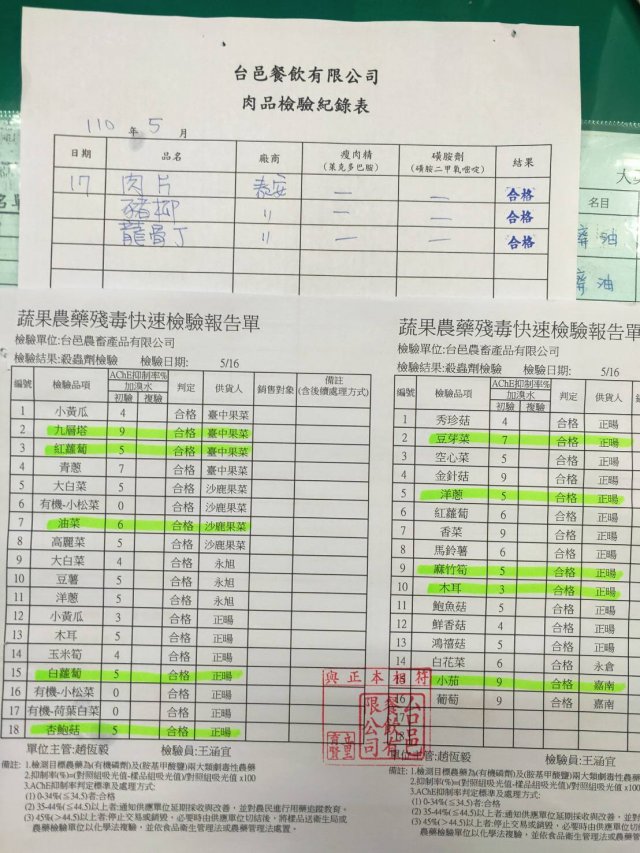 台邑餐飲有限公司
肉品檢驗紀錄表
110 年 5 月
日期 品名 廠商 瘦肉精 (萊克多巴胺) 磺胺劑 (磺胺二甲氧嘧啶) 結果
17 肉片 泰安 — — 合格
豬柳 〃 — — 合格
龍骨丁 〃 — — 合格
名目
油
油
蔬果農藥殘毒快速檢驗報告單
檢驗單位:台邑農畜產品有限公司
檢驗結果:殺蟲劑檢驗 檢驗日期: 5/16
編號 檢驗品項 AChE抑制率% 加溴水 初驗 複驗 判定 供貨人 銷售對象 備註 (含後續處理方式)
1 小黃瓜 4 合格 臺中果菜
2 九層塔 9 合格 臺中果菜
3 紅蘿蔔 5 合格 臺中果菜
4 青蔥 7 合格 臺中果菜
5 大白菜 5 合格 沙鹿果菜
6 有機-小松菜 0 合格 沙鹿果菜
7 油菜 6 合格 沙鹿果菜
8 高麗菜 5 合格 沙鹿果菜
9 大白菜 4 合格 永旭
10 豆薯 5 合格 永旭
11 洋蔥 5 合格 永旭
12 小黃瓜 3 合格 正暘
13 木耳 5 合格 正暘
14 玉米筍 4 合格 正暘
15 白蘿蔔 5 合格 正暘
16 有機-小松菜 0 合格 正暘
17 有機-荷葉白菜 0 合格 正暘
18 杏鮑菇 5 合格 正暘
單位主管:趙恆毅 檢驗員:王涵宜
備註: 1.檢測目標農藥為(有機磷劑)及(胺基甲酸鹽)兩大類劇毒性農藥
2.抑制率(%)=(對照組吸光值-樣品組吸光值)/對照組吸光值 x100
3.AChE抑制率判定標準及處理方式:
(1) 0-34%(≤34.5)者:合格
(2) 35-44%(≤44.5)以上者:通知供應單位延期採收與改善,並對農民進行用藥追蹤教育。
(3) 45%(>44.5)以上者:停止交易或銷毀,必要時由供應單位切結後,將樣品送衛生局或
農藥檢驗單位以化學法複驗,並依食品衛生管理法或農藥管理法處置。
蔬果農藥殘毒快速檢驗報告單
檢驗單位:台邑農畜產品有限公司
檢驗結果:殺蟲劑檢驗 檢驗日期: 5/16
編號 檢驗品項 AChE抑制率% 加溴水 初驗 複驗 判定 供貨人
1 秀珍菇 4 合格 正暘
2 豆芽菜 7 合格 正暘
3 空心菜 5 合格 正暘
4 金針菇 9 合格 正暘
5 洋蔥 5 合格 正暘
6 紅蘿蔔 6 合格 正暘
7 香菜 9 合格 正暘
8 馬鈴薯 6 合格 正暘
9 麻竹筍 5 合格 正暘
10 木耳 3 合格 正暘
11 鮑魚菇 5 合格 正暘
12 鮮香菇 4 合格 正暘
13 鴻禧菇 5 合格 正暘
14 白花菜 6 合格 永倉
小茄 9 合格 嘉南
16 葡萄 9 合格 嘉南
17
18
單位主管:趙恆毅 檢驗員:王涵宜
備註: 1.檢測目標農藥為(有機磷劑)及(胺基甲酸鹽)兩大類劇毒性農
2.抑制率(%)=(對照組吸光值-樣品組吸光值)/對照組吸光值 x100
3.AChE抑制率判定標準及處理方式:
(1) 0-34%(≤34.5)者:合格
(2) 35-44%(≤44.5)以上者:通知供應單位延期採收與改善,並
(3) 45%(>44.5)以上者:停止交易或銷毀,必要時由供應單位切
農藥檢驗單位以化學法複驗,並依食品衛生管理法或農
與正本相符
台邑餐飲有限公司